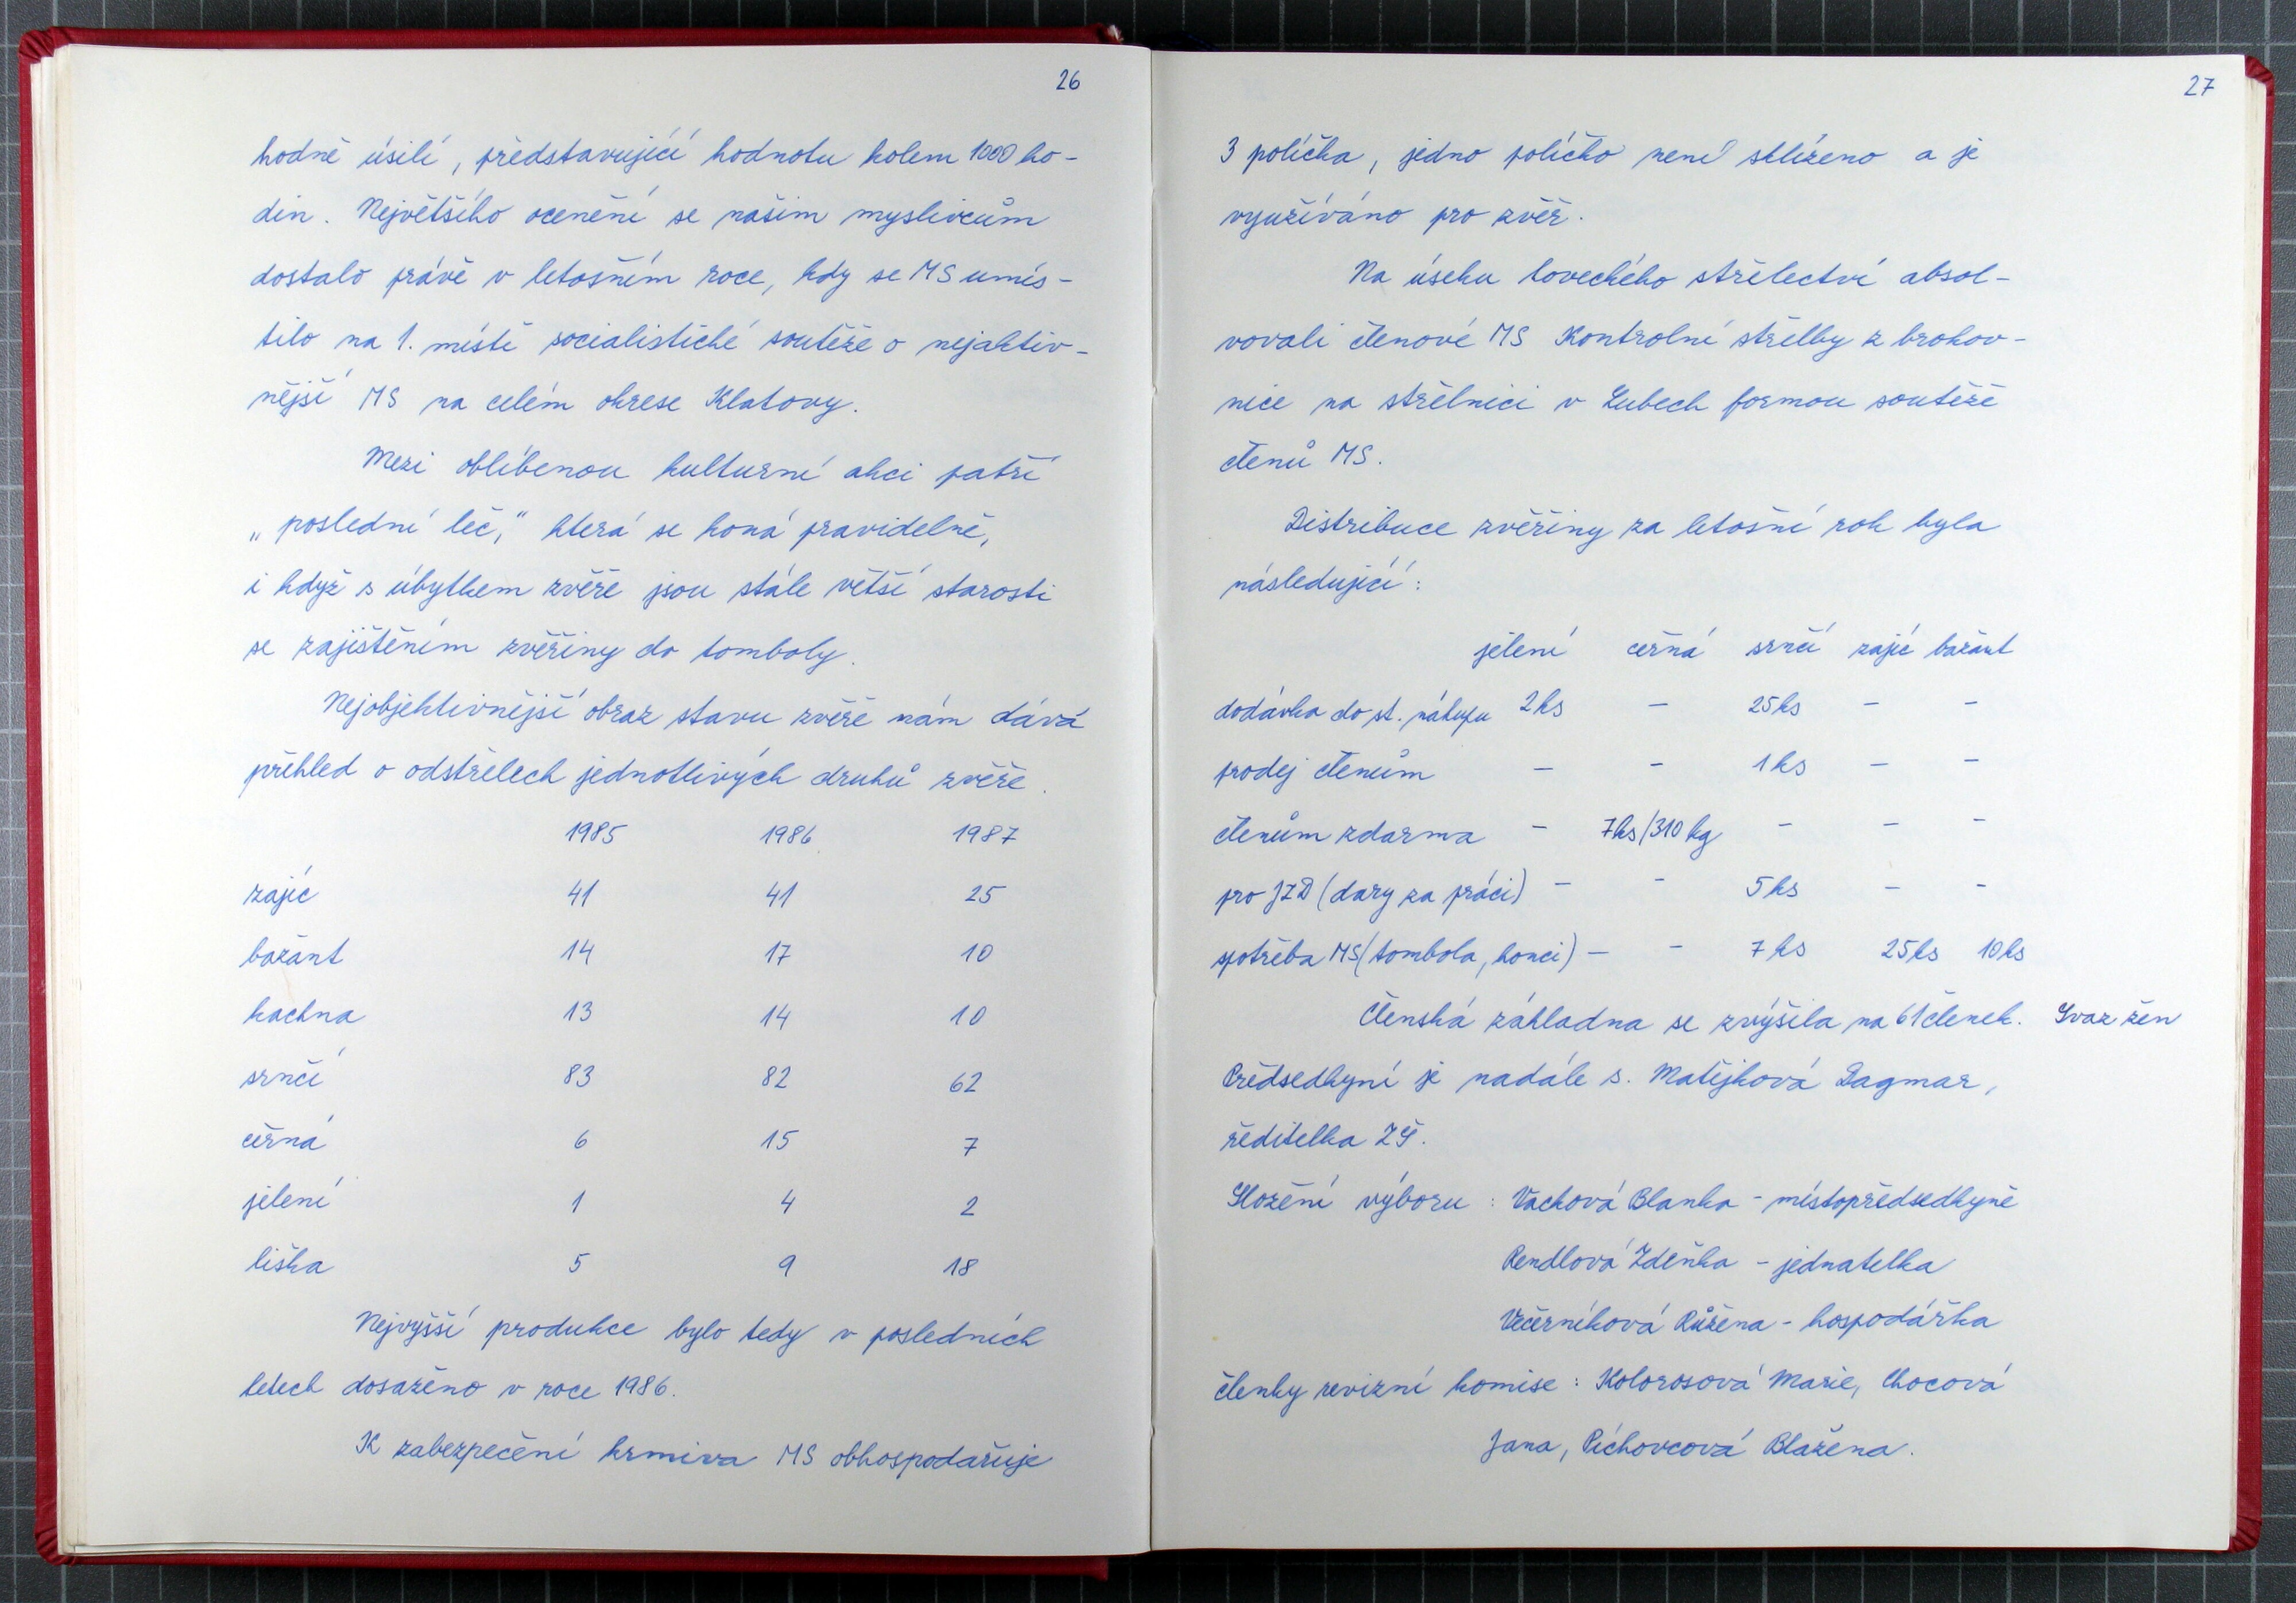 26
hodně úsilí, představující hodnotu kolem 1000 ho-
din. Největšího ocenění se našim myslivcům
dostalo právě v letošním roce, kdy se MS umís-
tilo na 1. místě socialistické soutěže o nejaktiv-
nější MS na celém okrese Klatovy.
Mezi oblíbenou kulturní akci patří
„poslední leč," která se koná pravidelně,
i když s úbytkem zvěře jsou stále větší starosti
se zajištěním zvěřiny do tomboly.
Nejobjektivnější obraz stavu zvěře nám dává
přehled o odstřelech jednotlivých druhů zvěře.
1985 1986 1987
zajíc 41 41 25
bažant 14 17 10
kachna 13 14 10
srnčí 83 82 62
černá 6 15 7
jelení 1 4 2
liška 5 9 18
Nejvyšší produkce bylo tedy v posledních
letech dosaženo v roce 1986.
K zabezpečení krmiva MS obhospodařuje
27
3 políčka, jedno políčko není sklizeno a je
využíváno pro zvěř.
Na úseku loveckého střelectví absol-
vovali členové MS Kontrolní střelby z brokov-
nice na střelnici v Lubech formou soutěže
členů MS.
Distribuce zvěřiny za letošní rok byla
následující:
jelení černá srnčí zajíc bažant
dodávka do st. nákupu 2ks – 25ks – –
prodej členům – – 1ks – –
členům zdarma – 7ks/310 kg – – –
pro JZD (dary za práci) – – 5ks – –
spotřeba MS (tombola, honci) – – 7 ks 25ks 10ks
Členská základna se zvýšila na 61 členek. Svaz žen
Předsedkyní je nadále s. Matějková Dagmar,
ředitelka ZŠ.
Složení výboru : Vachová Blanka – místopředsedkyně
Rendlová Zdeňka – jednatelka
Večerníková Růžena – hospodářka
členky revizní komise : Kolorosová Marie, Chocová
Jana, Píchovcová Blažena.